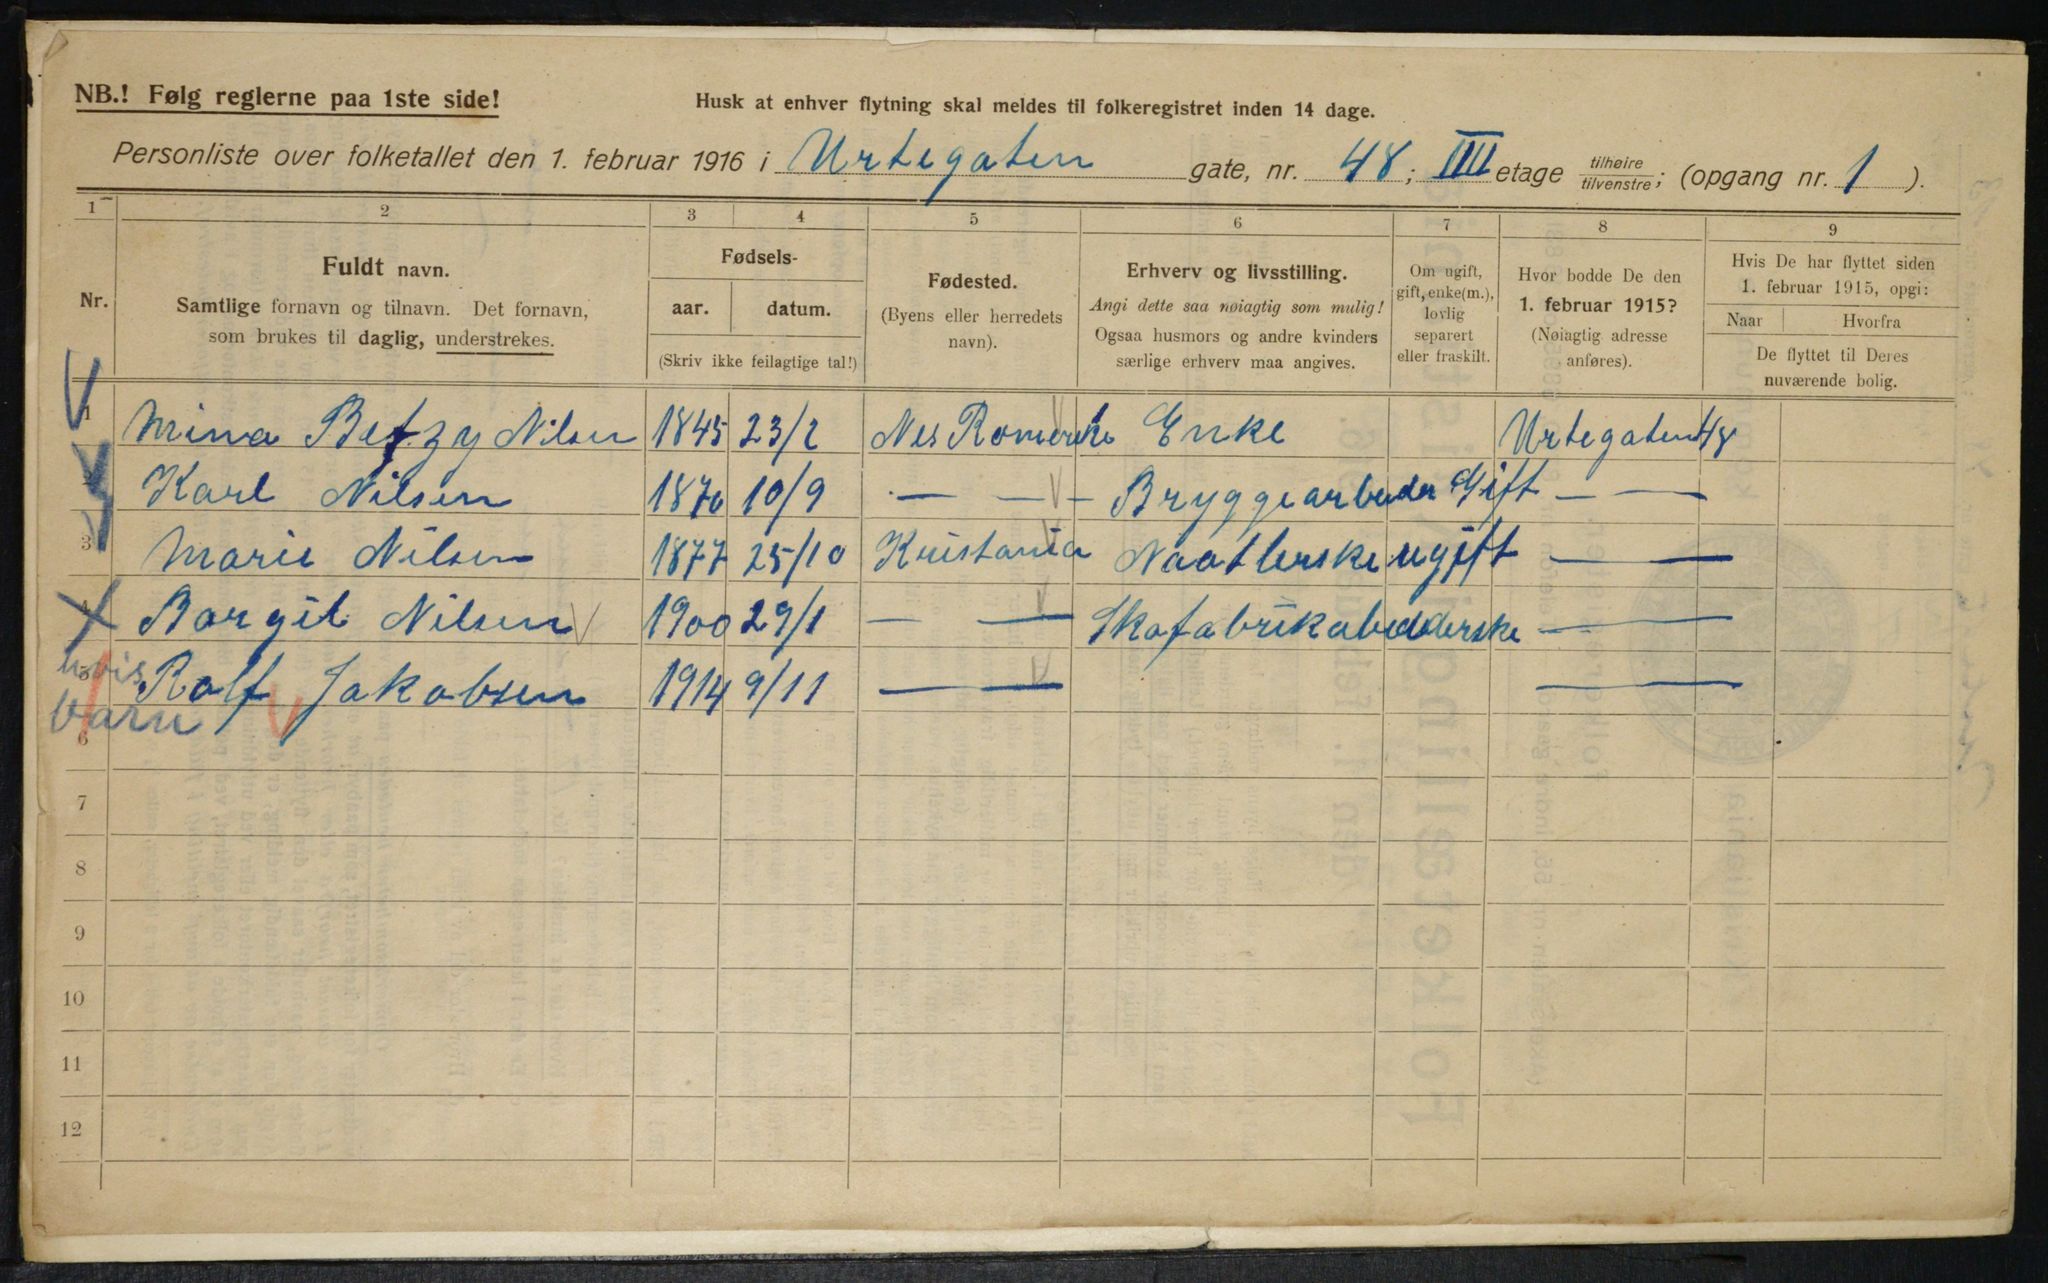 NB.! Følg reglerne paa 1ste side!
Husk at enhver flytning skal meldes til folkeregistret inden 14 dage.
Personliste over folketallet den 1. februar 1916 i Urtegaten gate, nr. 48; IIII etage tilhøire/tilvenstre; (opgang nr. 1).
1 2 3 4 5 6 7 8 9
Nr.
Fuldt navn.
Samtlige fornavn og tilnavn. Det fornavn,
som brukes til daglig, understrekes.
Fødsels-
aar. datum.
(Skriv ikke feilagtige tal!)
Fødested.
(Byens eller herredets
navn).
Erhverv og livsstilling.
Angi dette saa nøiagtig som mulig!
Ogsaa husmors og andre kvinders
særlige erhverv maa angives.
Om ugift,
gift, enke(m.),
lovlig
separert
eller fraskilt.
Hvor bodde De den
1. februar 1915?
(Nøiagtig adresse
anføres).
Hvis De har flyttet siden
1. februar 1915, opgi:
Naar Hvorfra
De flyttet til Deres
nuværende bolig.
1 Mina Betzy Nilsen 1845 23/2 Nes Romerike Enke Urtegaten 48
2 Karl Nilsen 1870 10/9 — — Bryggearbeider Gift — —
3 Marie Nilsen 1877 25/10 Kristania Naatlerske ugift — —
4 Borgil Nilsen 1900 29/1 — — Skofabrikabeiderske — —
5 Rolf Jakobsen 1914 9/11 — — — —
hvis
barn
6
7
8
9
10
11
12